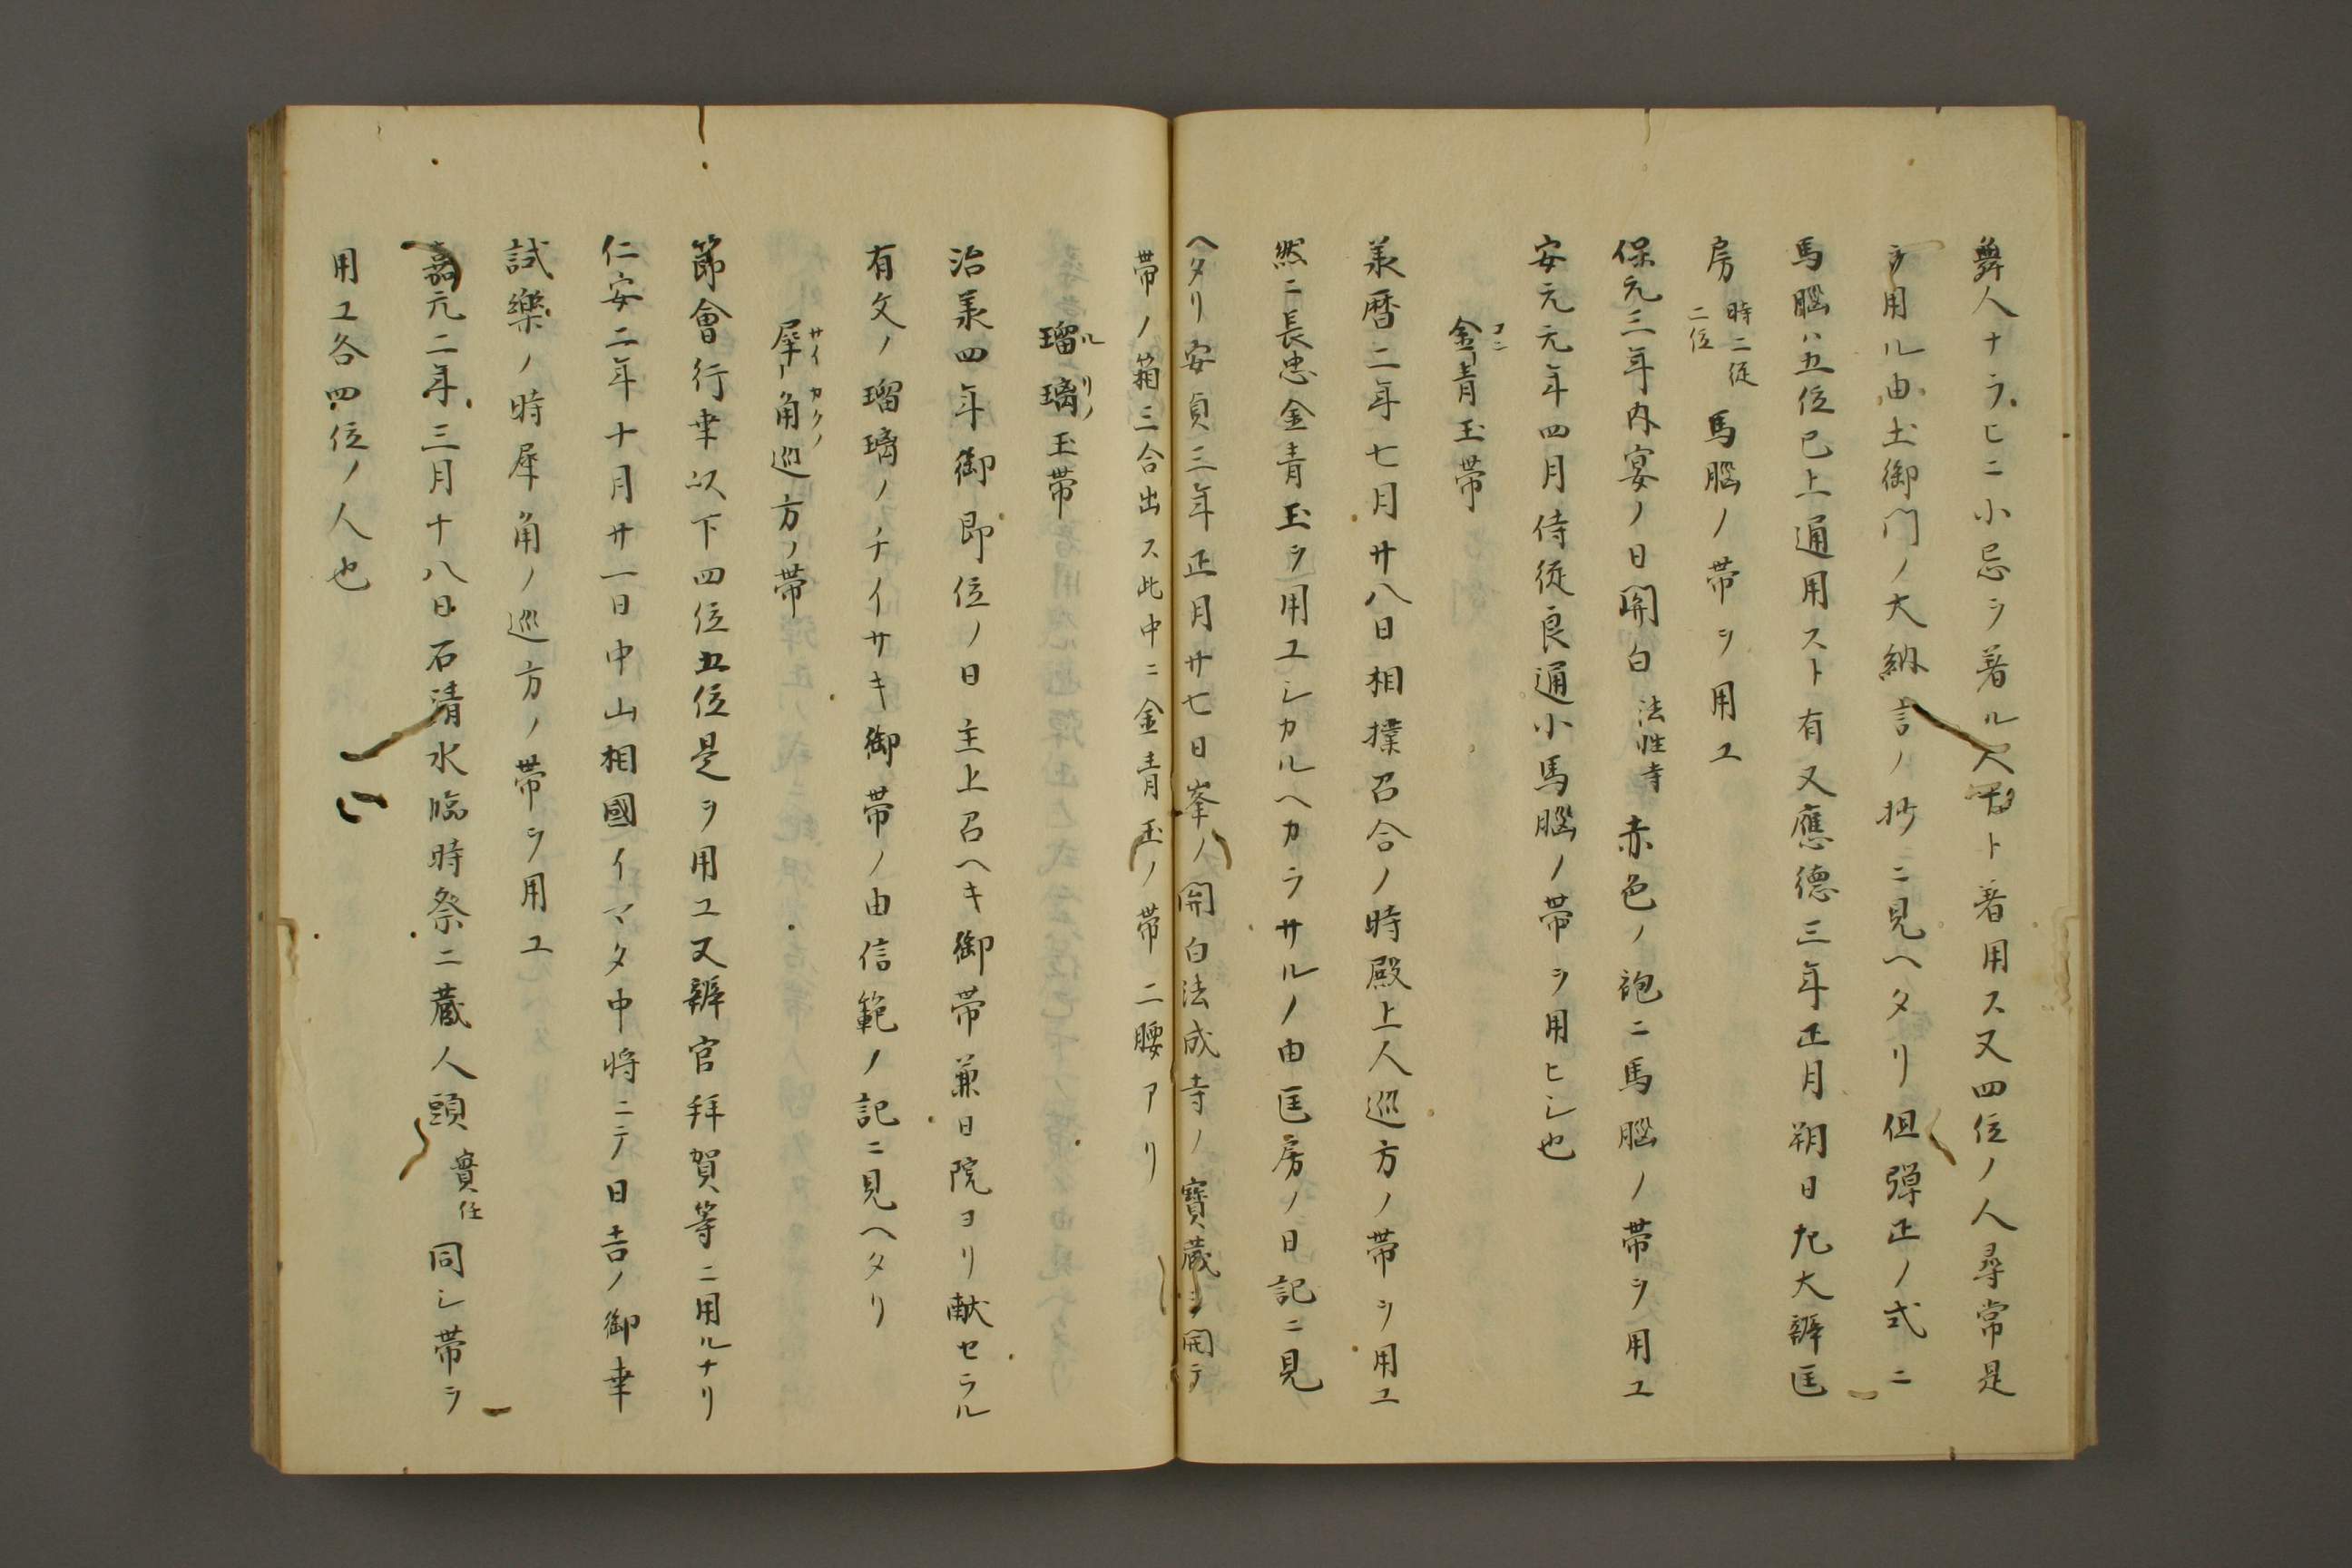 舞人ナラヒニ小忌ヲ著ル人ナト著用ス又四位ノ人尋常是
ヲ用ル由土御門ノ大納言ノ抄ニ見ヘタリ但弾正ノ式ニ
馬腦ハ五位已上通用スト有又應德三年正月朔日左大辨匡
房時ニ從二位馬腦ノ帯ヲ用ユ
保元三年内宴ノ日関白法性寺赤色ノ袍ニ馬腦ノ帯ヲ用ユ
安元元年四月侍從良通小馬腦ノ帯ヲ用ヒシ也
金青玉帯
コン
承暦二年七月廿八日相撲召合ノ時殿上人巡方ノ帯ヲ用ユ
然ニ長忠金青玉ヲ用ユシカルヘカラサルノ由匡房ノ日記ニ見
ヘタリ安貞三年正月廿七日峯ノ関白法成寺ノ寳蔵ヲ開テ
帯ノ箱三合出ス此中ニ金青玉ノ帯二腰アリ
瑠璃玉帯
ルリノ
治承四年御即位ノ日主上召ヘキ御帯兼日院ヨリ献セラル
有文ノ瑠璃ノチイサキ御帯ノ由信範ノ記ニ見ヘタリ
犀角巡方ノ帯
サイカクノ
節會行幸以下四位五位是ヲ用ユ又辨官拜賀等ニ用ルナリ
仁安二年十月廿一日中山相國イマタ中將ニテ日吉ノ御幸
試樂ノ時犀角ノ巡方ノ帯ヲ用ユ
嘉元二年三月十八日石清水臨時祭ニ蔵人頭實任同シ帯ヲ
用ユ各四位ノ人也